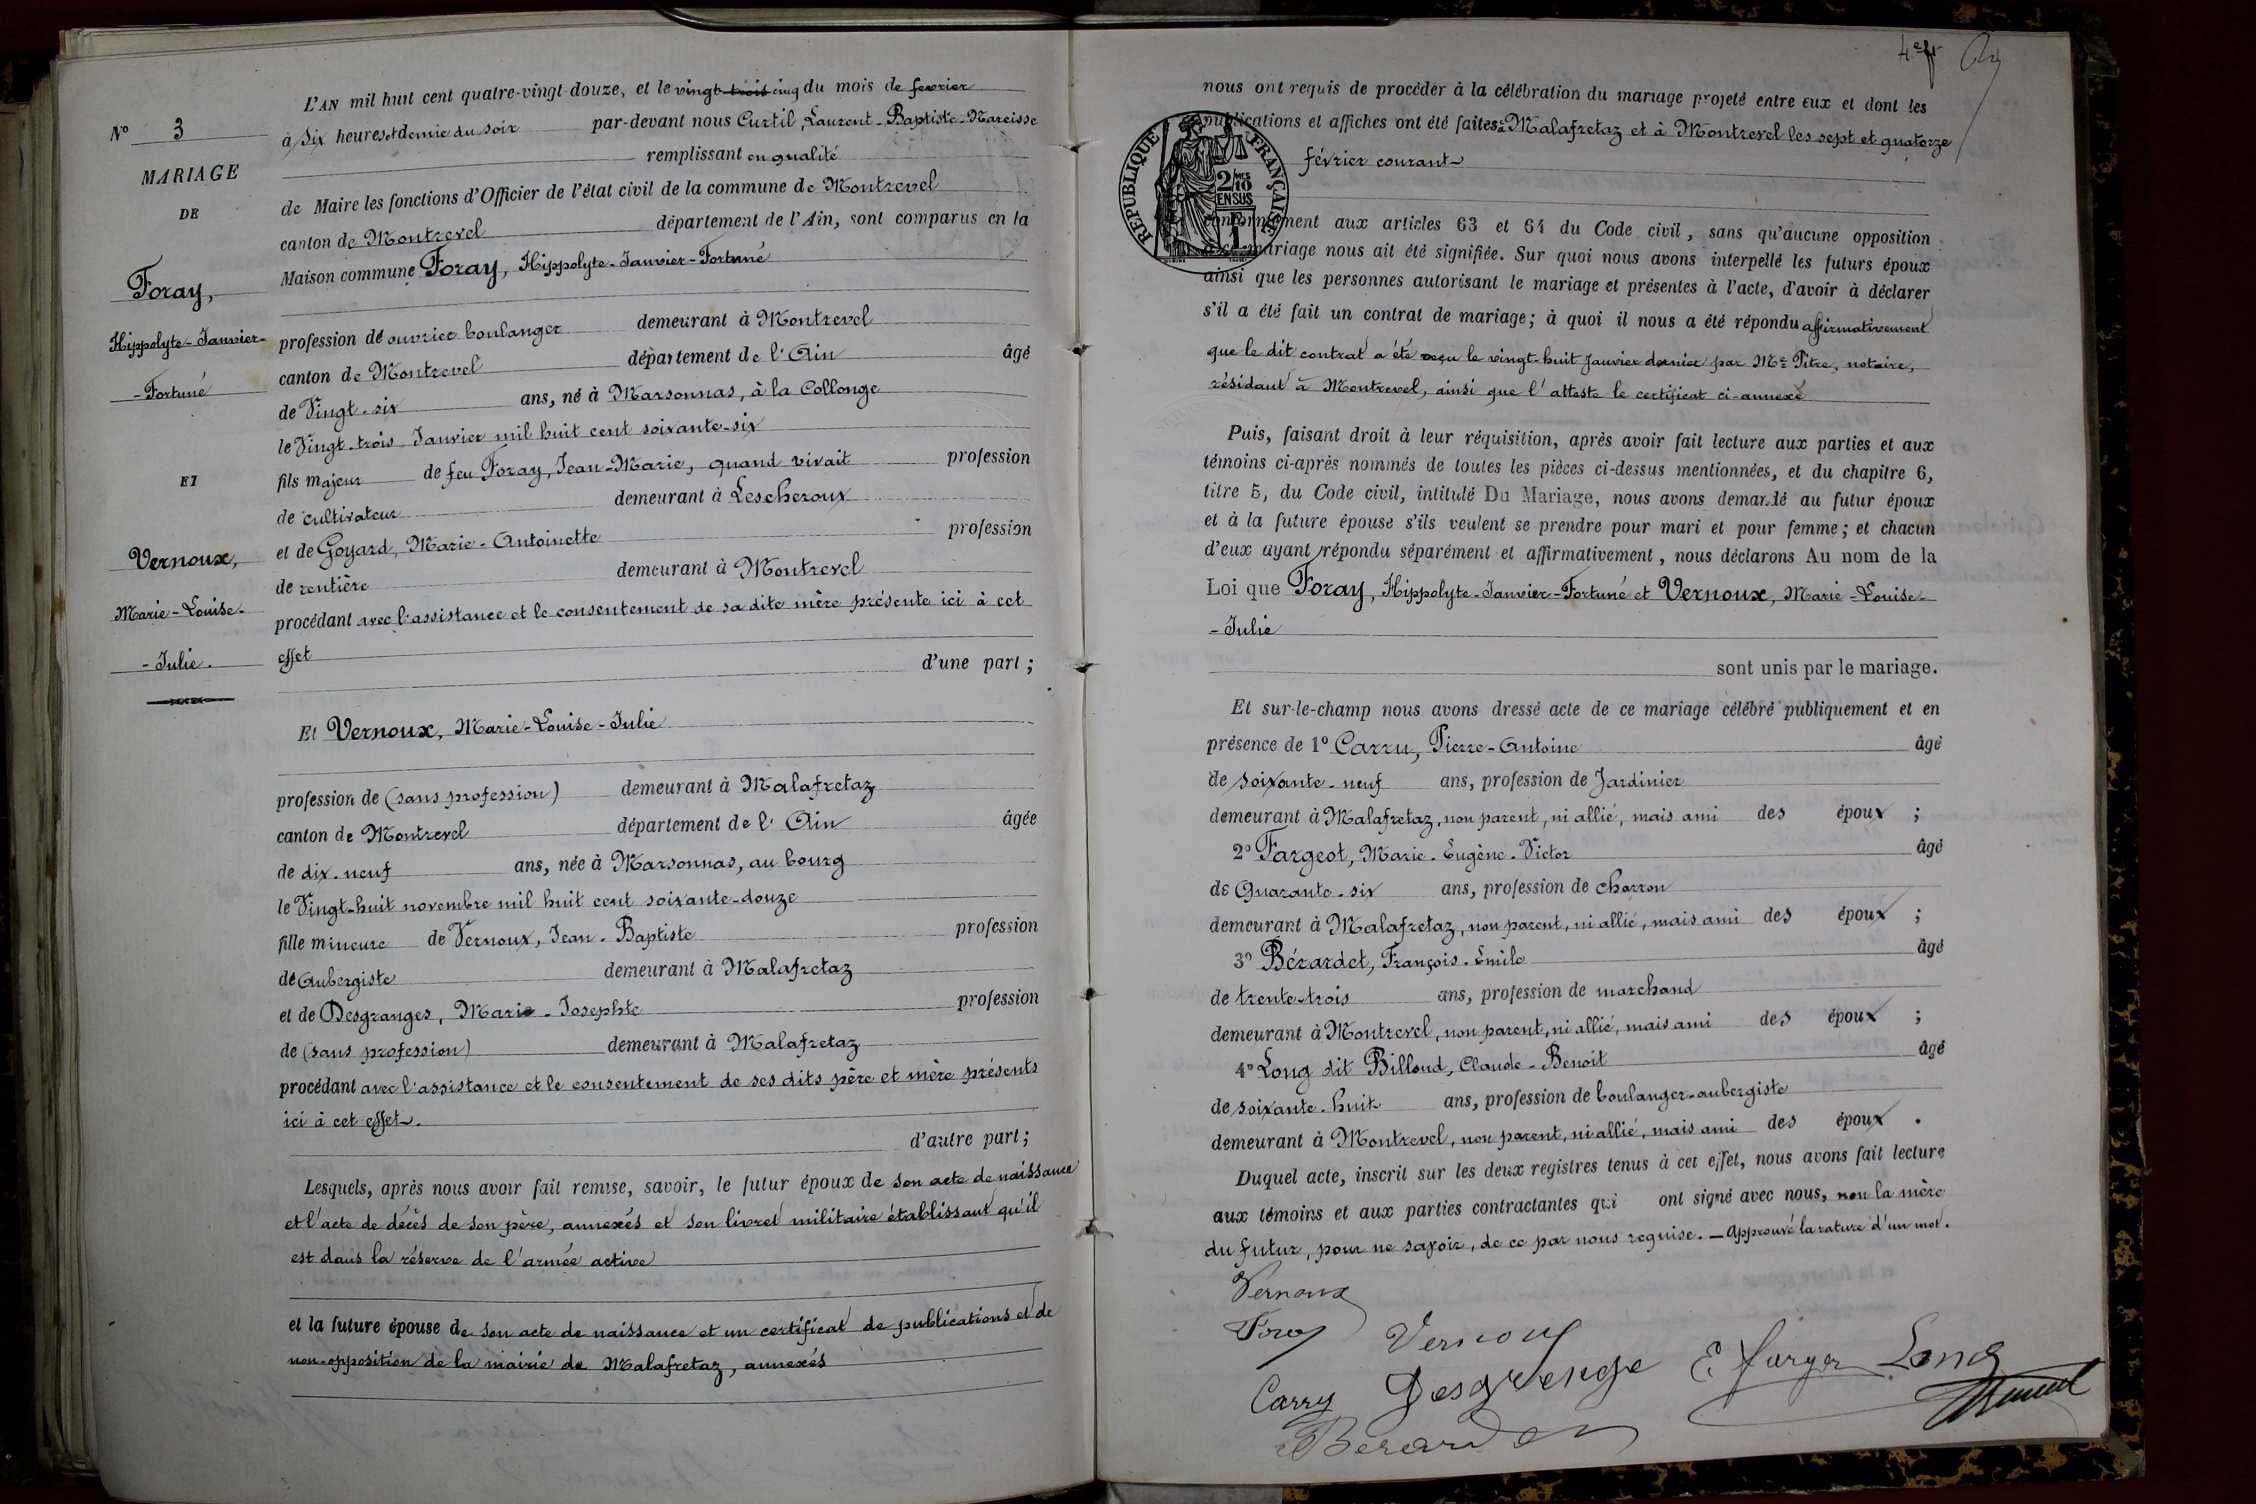 L'AN mil huit cent quatre-vingt-douze, et le vingt trois cinq du mois de fevrier
N° 3
à six heures et demie du soir par-devant nous Curtil, Laurent-Baptiste-Narcisse
remplissant en qualité
MARIAGE
de Maire les fonctions d'Officier de l'état civil de la commune de Montrevel
DE
canton de Montrevel département de l'Ain, sont comparus en la
Maison commune Foray, Hippolyte-Janvier-Fortuné
Foray,
Hippolyte-Janvier-
-Fortuné
profession de ouvrier boulanger demeurant à Montrevel
canton de Montrevel département de l'Ain âgé
de Vingt-six ans, né à Marsonnas, à la Collonge
le Vingt-trois Janvier mil huit cent soixante-six
ET
fils majeur de feu Foray, Jean-Marie, quand vivait profession
de cultivateur demeurant à Lescheroux
et de Goyard, Marie-Antoinette profession
Vernoux,
de rentière demeurant à Montrevel
Marie-Louise-
procédant avec l'assistance et le consentement de sa dite mère présente ici à cet
-Julie.
effet
d'une part;
Et Vernoux, Marie-Louise-Julie
profession de (sans profession) demeurant à Malafretaz
canton de Montrevel département de l'Ain âgée
de dix-neuf ans, née à Marsonnas, au bourg
le Vingt-huit novembre mil huit cent soixante-douze
fille mineure de Vernoux, Jean-Baptiste profession
de Aubergiste demeurant à Malafretaz
et de Desgranges, Marie-Josephte profession
de (sans profession) demeurant à Malafretaz
procédant avec l'assistance et le consentement de ses dits père et mère présents
ici à cet effet.
d'autre part;
Lesquels, après nous avoir fait remise, savoir, le futur époux de son acte de naissance
et l'acte de décès de son père, annexés et son livret militaire établissant qu'il
est dans la réserve de l'armée active
et la future épouse de son acte de naissance et un certificat de publications et de
non-opposition de la mairie de Malafretaz, annexés
nous ont requis de procéder à la célébration du mariage projeté entre eux et dont les
publications et affiches ont été faites à Malafretaz et à Montrevel les sept et quatorze
février courant
RÉPUBLIQUE FRANÇAISE
2/10 MES
EN SUS
conformément aux articles 63 et 64 du Code civil, sans qu'aucune opposition
à ce mariage nous ait été signifiée. Sur quoi nous avons interpellé les futurs époux
ainsi que les personnes autorisant le mariage et présentes à l'acte, d'avoir à déclarer
s'il a été fait un contrat de mariage; à quoi il nous a été répondu affirmativement
que le dit contrat a été reçu le vingt-huit Janvier dernier par Me Pitre, notaire,
résidant à Montrevel, ainsi que l'atteste le certificat ci-annexé
Puis, faisant droit à leur réquisition, après avoir fait lecture aux parties et aux
témoins ci-après nommés de toutes les pièces ci-dessus mentionnées, et du chapitre 6,
titre 5, du Code civil, intitulé Du Mariage, nous avons demandé au futur époux
et à la future épouse s'ils veulent se prendre pour mari et pour femme; et chacun
d'eux ayant répondu séparément et affirmativement, nous déclarons Au nom de la
Loi que Foray, Hippolyte-Janvier-Fortuné et Vernoux, Marie-Louise-
-Julie
sont unis par le mariage.
Et sur-le-champ nous avons dressé acte de ce mariage célébré publiquement et en
présence de 1° Carru, Pierre-Antoine âgé
de soixante-neuf ans, profession de Jardinier
demeurant à Malafretaz, non parent, ni allié, mais ami des époux ;
2° Fargeot, Marie-Eugène-Victor âgé
de Quarante-six ans, profession de charron
demeurant à Malafretaz, non parent, ni allié, mais ami des époux ;
3° Bérardet, François-Emile âgé
de trente-trois ans, profession de marchand
demeurant à Montrevel, non parent, ni allié, mais ami des époux ;
4° Long dit Billoud, Claude-Benoit âgé
de soixante-huit ans, profession de boulanger-aubergiste
demeurant à Montrevel, non parent, ni allié, mais ami des époux .
Duquel acte, inscrit sur les deux registres tenus à cet effet, nous avons fait lecture
aux témoins et aux parties contractantes qui ont signé avec nous, non la mère
du futur, pour ne savoir, de ce par nous requise. — Approuvé la rature d'un mot.
Vernoux
Foray Vernoux
Carry Desgrenge E fargeo Long
Berardet